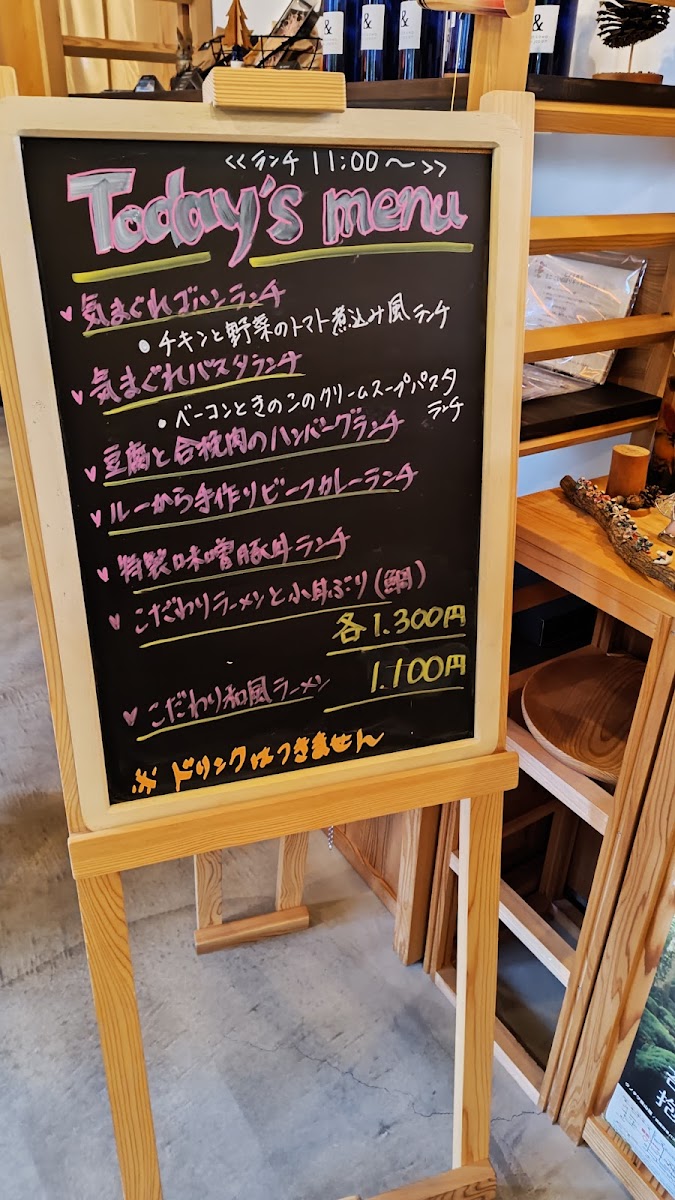 <<ランチ 11:00〜>>
Today's menu
♥気まぐれゴハンランチ
●チキンと野菜のトマト煮込み風ランチ
♥気まぐれパスタランチ
●ベーコンときのこのクリームスープパスタ
ランチ
♥豆腐と合挽肉のハンバーグランチ
♥ルーから手作りビーフカレーランチ
♥特製味噌豚丼ランチ
♥こだわりラーメンと小丼ぶり(鯛)
各1.300円
1.100円
♥こだわり和風ラーメン
※ドリンクはつきません
&
&
&
&